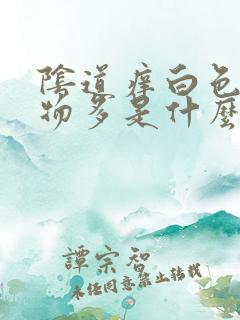 陰道痒白色
物多是什麽
譚宗智
未经同意禁止转载